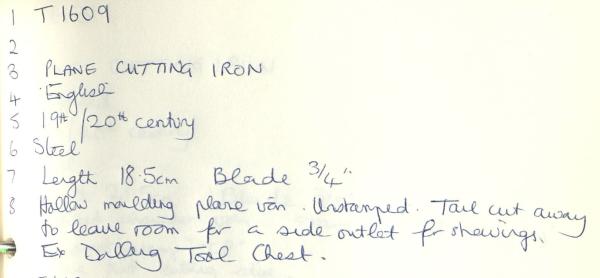 1 T1609
2
3 PLANE CUTTING IRON
4 English
5 19th/20th century
6 Steel
7 Length 18.5cm Blade 3/4".
8 Hollow moulding plane iron. Unstamped. Tail cut away
to leave room for a side outlet for shavings.
Ex Dalling Tool Chest.